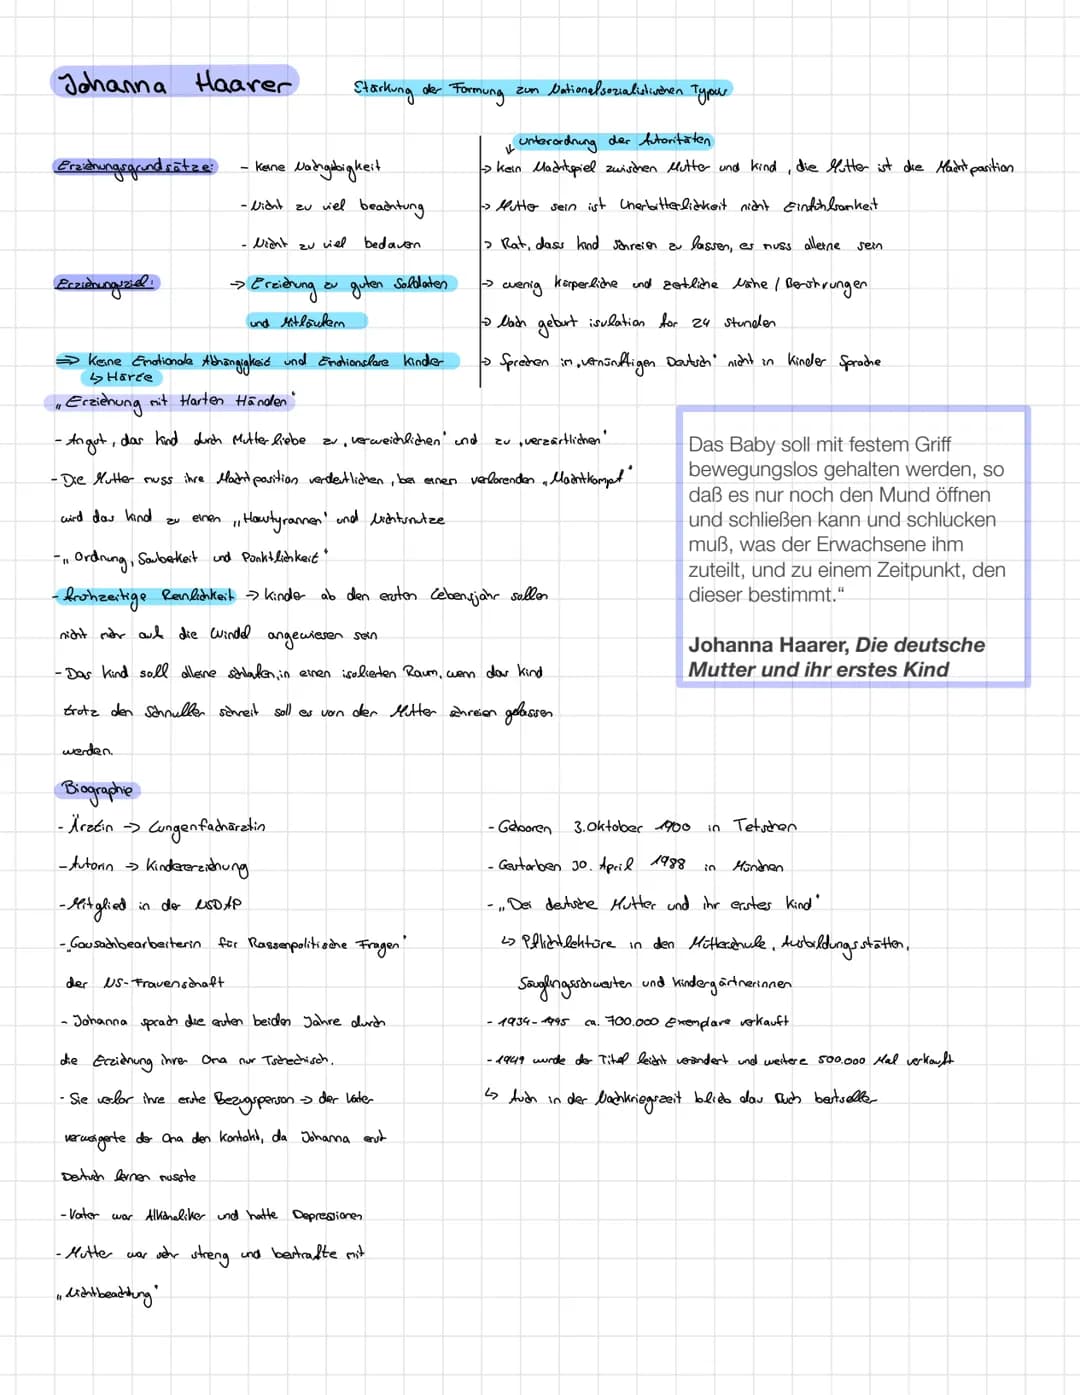 Johanna Haarer
Stärkung der Formung zum Nationalsozialistischen Typus
Erziehungsgrundsätze:
- Keine Nachgibigkeit
- Nicht zu viel beachtung
- Nicht zu viel bedauern
Erziehungsziel:
→ Erziehung zu guten Soldaten
und Mitläufern
⇒ Keine Emotionale Abhängigkeit und Emotionslare Kinder
↳ Härte
↓ unterordnung der Autoritäten
→ kein Machtspiel zwischen Mutter und Kind, die Mutter ist die Machtposition
→ Mutter sein ist Unerbitterlichkeit nicht Einfühlsamkeit
→ Rat, dass kind schreien zu lassen, es muss alleine sein
→ wenig körperliche und zeitliche Nähe / Berührungen
→ Nach geburt isulation für 24 Stunden
→ Sprechen in „vernünftigen Deutsch" nicht in Kinder Sprache
„Erziehung mit Harten Händen"
- Angst, das Kind durch Mutterliebe zu „verweichlichen" und zu „verzärtlichen"
- Die Mutter muss ihre Machtposition verdeutlichen, bei einen verlorenden „Machtkampf"
wird das kind zu einen „Haustyrannen" und Nichtsnutze
- „Ordnung, Sauberkeit und Pünktlichkeit"
- frühzeitige Reinlichkeit → Kinder ab den ersten Lebensjahr sollen
nicht mehr auf die Windel angewiesen sein
- Das Kind soll alleine schlafen, in einen isolierten Raum, wenn das Kind
trotz den Schnuller schreit soll es von der Mutter schreien gelassen
werden.
Das Baby soll mit festem Griff
bewegungslos gehalten werden, so
daß es nur noch den Mund öffnen
und schließen kann und schlucken
muß, was der Erwachsene ihm
zuteilt, und zu einem Zeitpunkt, den
dieser bestimmt.“
Johanna Haarer, Die deutsche
Mutter und ihr erstes Kind
Biographie
- Ärztin → Lungenfachärztin
- Autorin → Kindererziehung
- Mitglied in der NSDAP
- „Gausachbearbeiterin für Rassenpolitische Fragen"
der NS-Frauenschaft
- Johanna sprach die ersten beiden Jahre durch
die Erziehung ihrer Oma nur Tschechisch.
- Sie verlor ihre erste Bezugsperson → der Vater
verweigerte der Oma den Kontakt, da Johanna erst
Deutsch lernen musste
- Vater war Alkoholiker und hatte Depressionen
- Mutter war sehr streng und bestrafte mit
„Nichtbeachtung"
- Geboren 3. Oktober 1900 in Tetschen
- Gestorben 30. April 1988 in München
- „Dei deutsche Mutter und ihr erstes Kind"
↳ Pflichtlektüre in den Mütterschule, Ausbildungsstätten,
Säuglingsschwestern und Kindergärtnerinnen
- 1934-1945 ca. 700.000 Exemplare verkauft
- 1949 wurde der Titel leicht verändert und weitere 500.000 Mal verkauft
↳ Auch in der Nachkriegszeit blieb das Buch bestseller